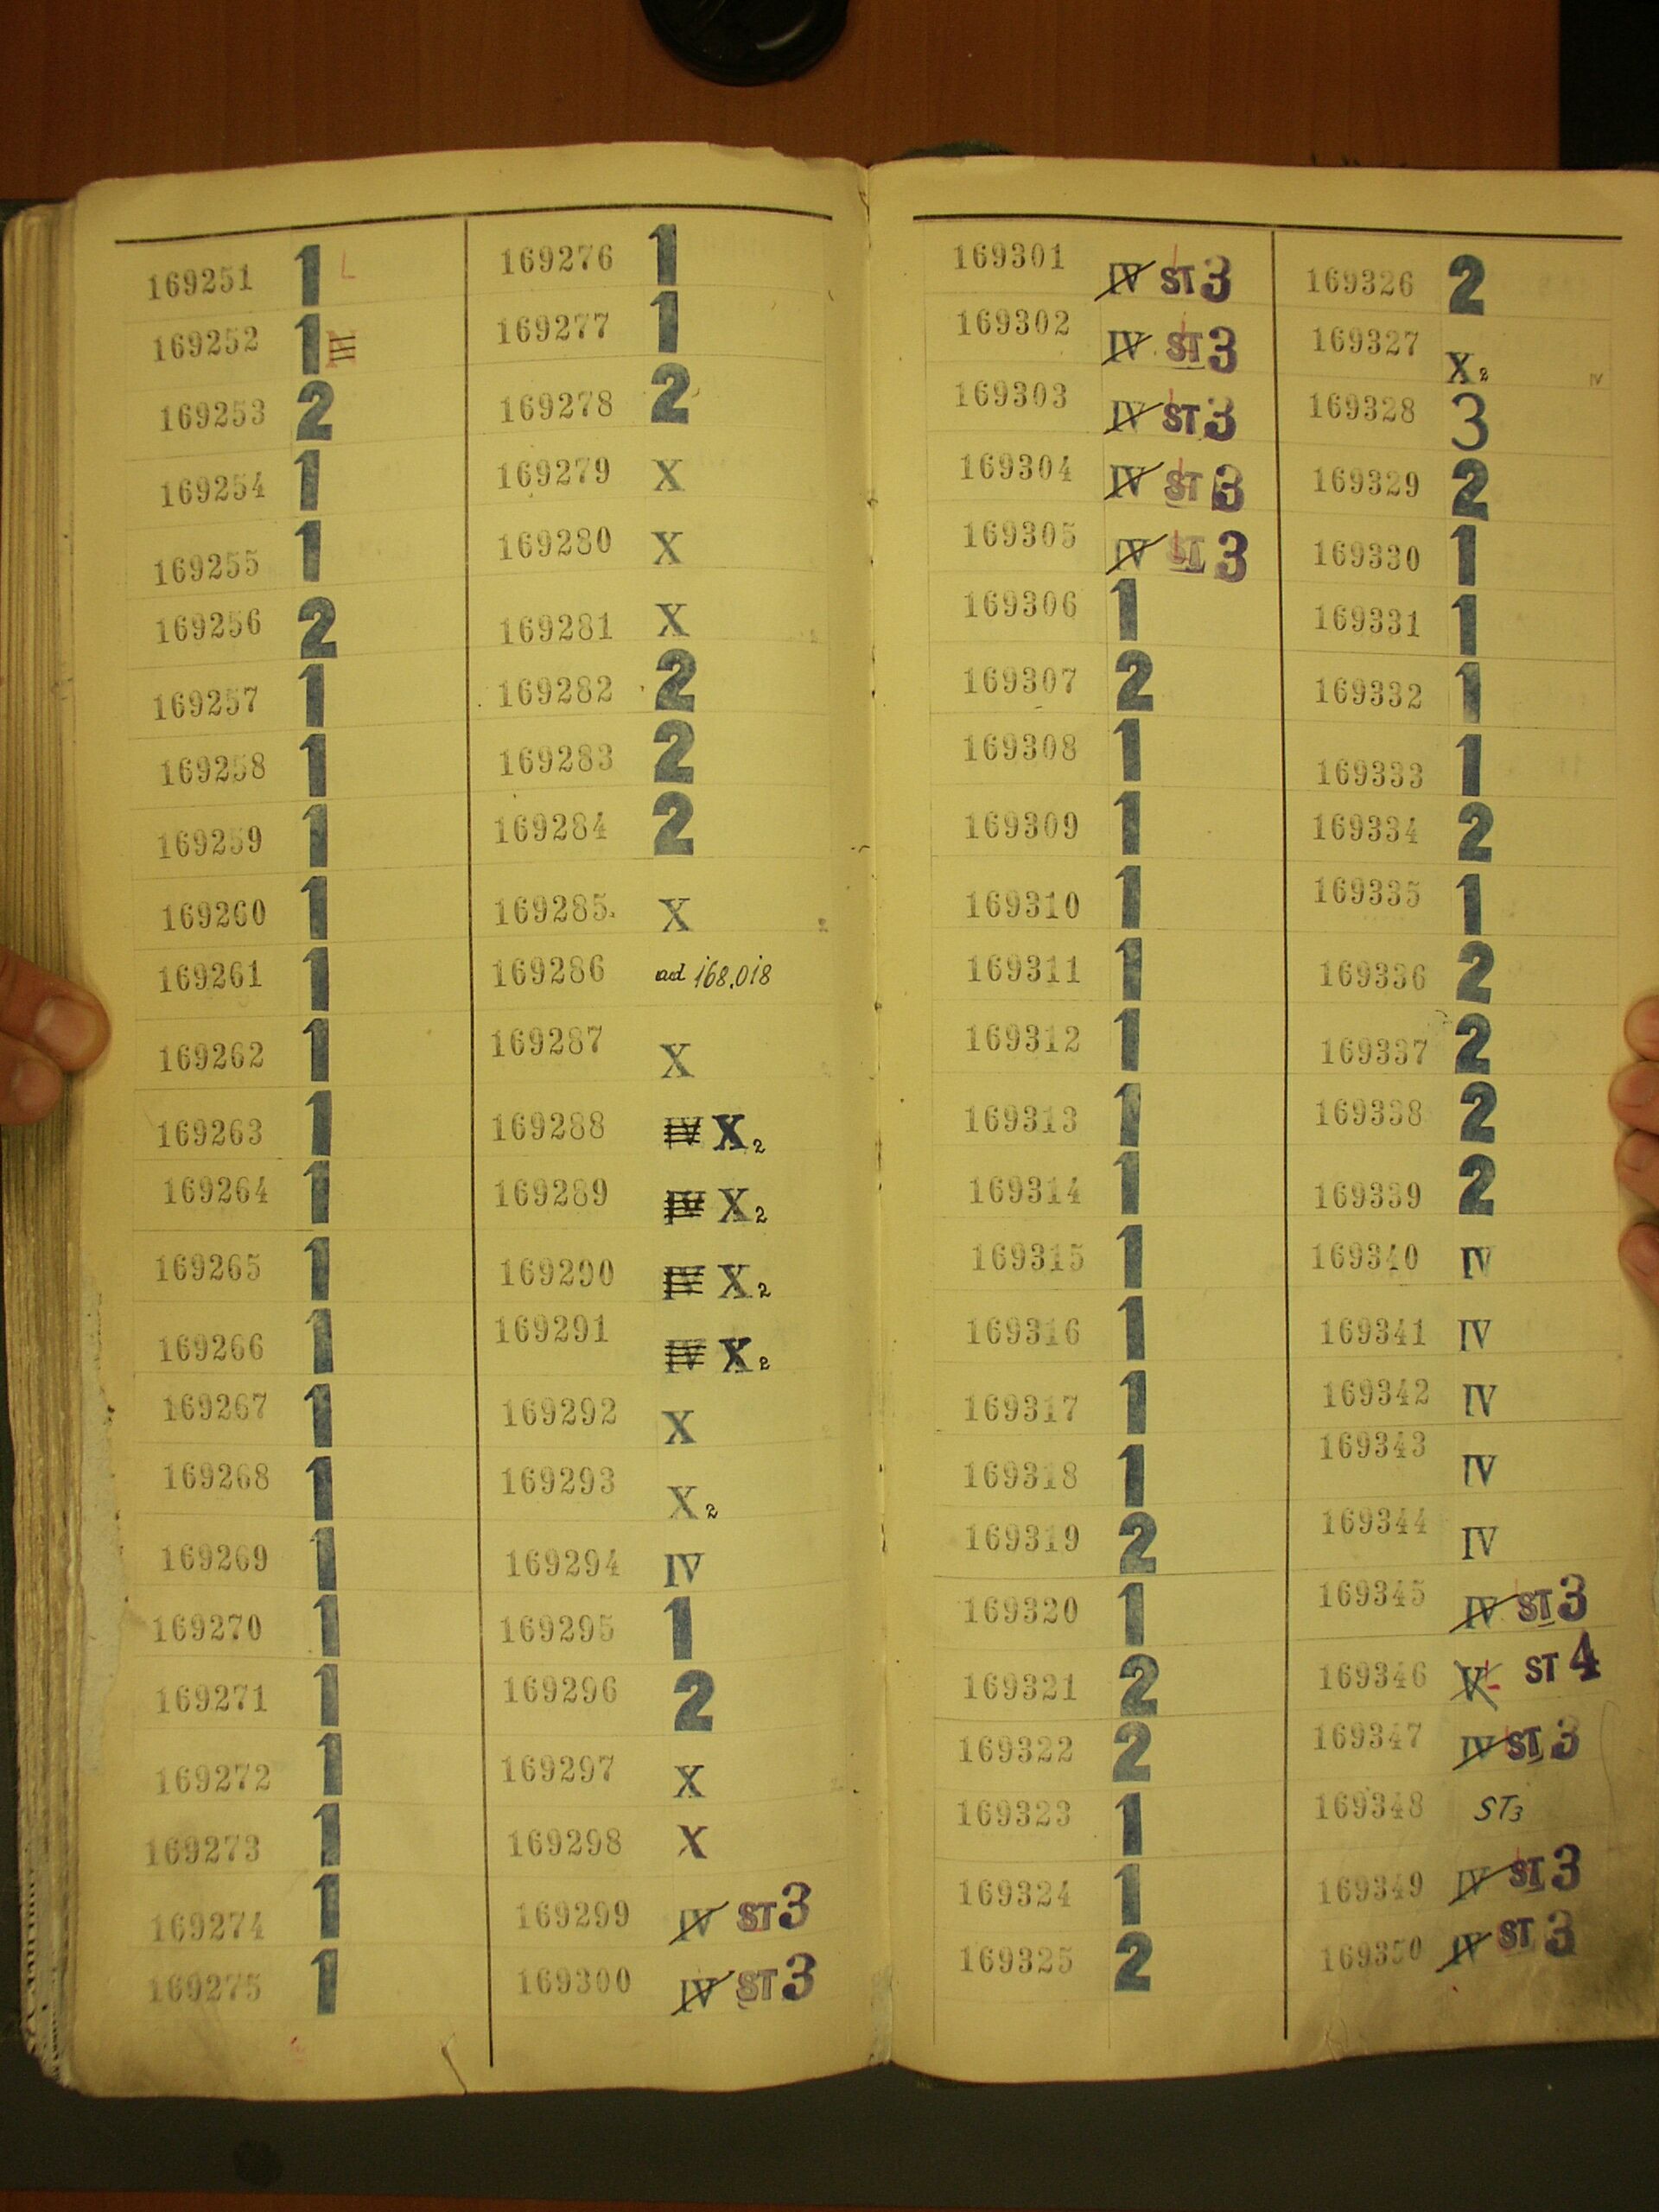 169251 1 L
169252 1
169253 2
169254 1
169255 1
169256 2
169257 1
169258 1
169259 1
169260 1
169261 1
169262 1
169263 1
169264 1
169265 1
169266 1
169267 1
169268 1
169269 1
169270 1
169271 1
169272 1
169273 1
169274 1
169275 1
169276 1
169277 1
169278 2
169279 X
169280 X
169281 X
169282 2
169283 2
169284 2
169285. X
169286 ad 168.018
169287 X
169288 IV X2
169289 IV X2
169290 IV X2
169291 IV X2
169292 X
169293 X2
169294 IV
169295 1
169296 2
169297 X
169298 X
169299 IV ST 3
169300 IV ST 3
169301 IV ST 3
169302 IV ST 3
169303 IV ST 3
169304 IV ST 3
169305 IV ST 3
169306 1
169307 2
169308 1
169309 1
169310 1
169311 1
169312 1
169313 1
169314 1
169315 1
169316 1
169317 1
169318 1
169319 2
169320 1
169321 2
169322 2
169323 1
169324 1
169325 2
169326 2
169327 X2 IV
169328 3
169329 2
169330 1
169331 1
169332 1
169333 1
169334 2
169335 1
169336 2
169337 2
169338 2
169339 2
169340 IV
169341 IV
169342 IV
169343 IV
169344 IV
169345 IV ST 3
169346 V ST 4
169347 IV ST 3
169348 ST3
169349 IV ST 3
169350 IV ST 3